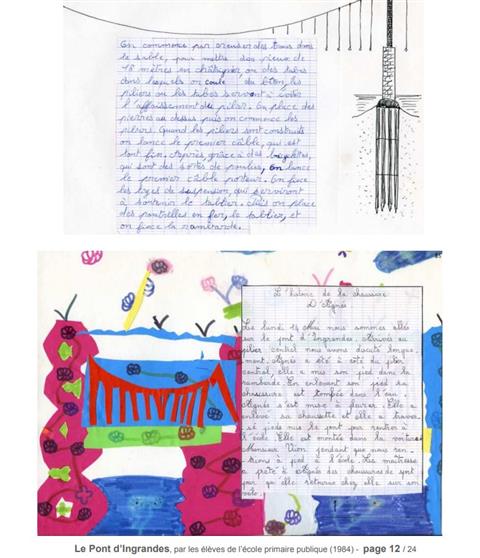 On commence par creuser des trous dans
le sable, pour mettre des pieux de
18 mètres en châtaignier ou des tubes
dans lesquels on coule du béton, les
piliers ou les tubes servent à éviter
l'affaissement du pilier. On place des
pierres au dessus puis on commence les
piliers. Quand les piliers sont construits
on lance le premier câble, qui est
tout fin, après, grâce à des
qui sont des sortes de poulies, on lance
le premier câble porteur. On fixe
les tiges de suspension, qui serviront
à soutenir le tablier. Puis on place
des poutrelles en fer, le tablier, et
on fixe la rambarde.
L'histoire de la chaussure
D'Agnès
Le lundi 14 Mai nous sommes allés
sur le pont d'Ingrandes. Arrivés au
pilier central nous avons discuté longue_
ment, Agnès a été à côté du pilier
central, elle a mis son pied dans la
rambarde. En enlevant son pied sa
chaussure est tombée dans l'eau
Agnès s'est mise à pleurer. Elle a
enlevé sa chaussette et elle a traver_
sé pieds nus le pont pour rentrer à
l'école. Elle est montée dans la voiture
Monsieur Vion pendant que nous ren_
trions à pied à l'école. La maîtresse
a prêté à Agnès des chaussures de sport
pour qu'elle retourne chez elle sur son
vélo.
Le Pont d'Ingrandes, par les élèves de l'école primaire publique (1984) - page 12 / 24